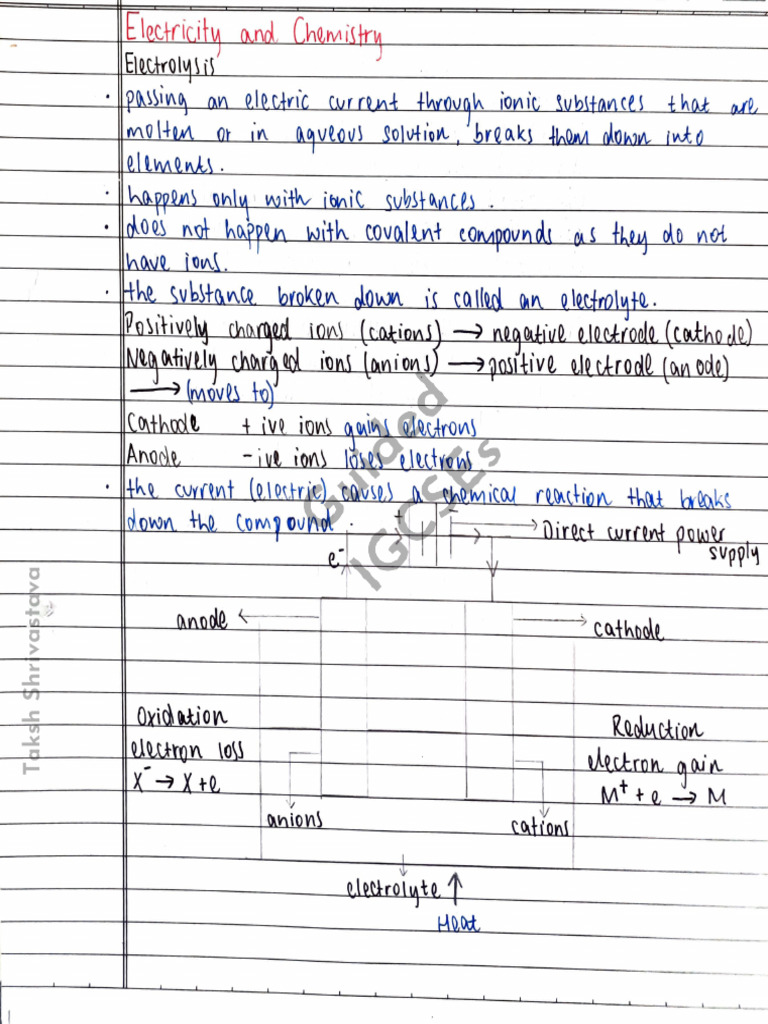 Electricity and Chemistry
Electrolysis
· passing an electric current through ionic substances that are
molten or in aqueous solution, breaks them down into
elements.
· happens only with ionic substances.
· does not happen with covalent compounds as they do not
have ions.
· the substance broken down is called an electrolyte.
Positively charged ions (cations) → negative electrode (cathode)
Negatively charged ions (anions) → positive electrode (anode)
→ (moves to)
Cathode + ive ions gains electrons
Anode -ive ions loses electrons
· the current (electric) causes a chemical reaction that breaks
down the compound.
+ -
Direct current power
supply
e⁻
anode
cathode
Oxidation
electron loss
X⁻ → X + e
Reduction
electron gain
M⁺ + e → M
anions
cations
electrolyte ↑
Heat
Guided
IGCSEs
Taksh Shrivastava